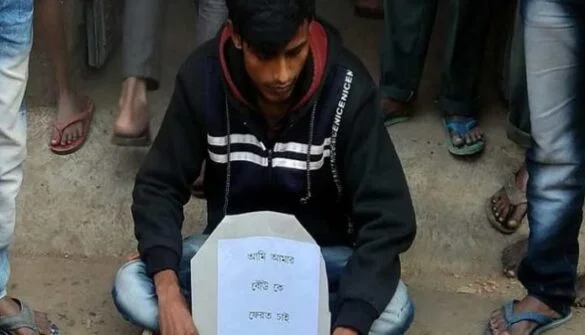 NICENICENICE
আমি আমার
বৌউ কে
ফেরত চাই